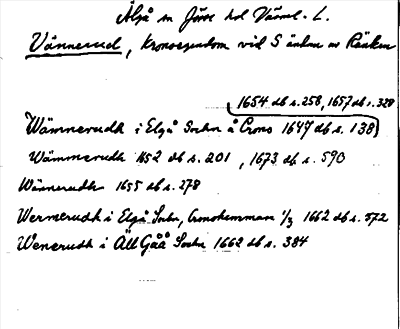 Älgå sn Jösse hd Värml. L.
Vännerud, kronoegendom vid S änden av Räken
1654 db s. 258, 1657 db s. 320
Wämnerudh i Elgå Sochn å Crono 1647 db s. 138
Wämmerudh 1652 db s. 201, 1673 db s. 590
Wännerudh 1655 db s. 278
Wermerudh i Elgå Sochn, Cronohemman 1/3 1662 db s. 572
Wenerudh i Äll Gåå Sochn 1662 db s. 384